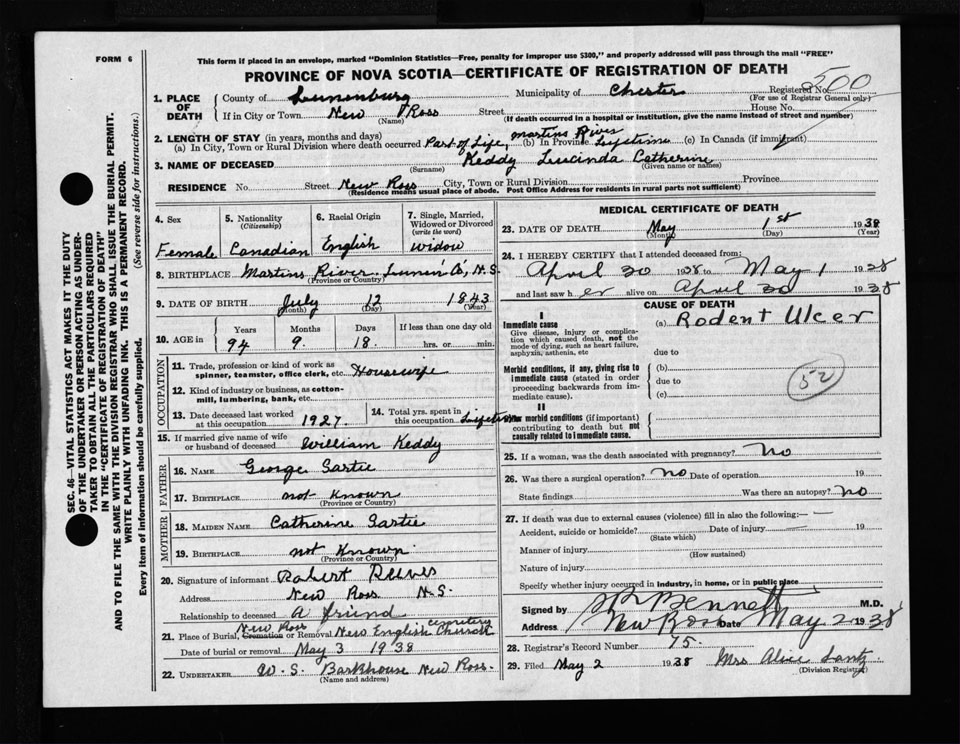 FORM 6
This form if placed in an envelope, marked "Dominion Statistics—Free, penalty for improper use $300," and properly addressed will pass through the mail "FREE"
PROVINCE OF NOVA SCOTIA—CERTIFICATE OF REGISTRATION OF DEATH
500
1. PLACE OF DEATH
County of Lunenburg Municipality of Chester Registered No.
(For use of Registrar General only)
If in City or Town New Ross Street House No.
(Name) (If death occurred in a hospital or institution, give the name instead of street and number)
2. LENGTH OF STAY (in years, months and days)
(a) In City, Town or Rural Division where death occurred Part of Life, (b) In Province Lifetime (c) In Canada (if immigrant)
Martins River
3. NAME OF DECEASED Keddy Lucinda Catherine
(Surname) (Given name or names)
RESIDENCE No. Street New Ross City, Town or Rural Division Province
(Residence means usual place of abode. Post Office Address for residents in rural parts not sufficient)
4. Sex
Female
5. Nationality
(Citizenship)
Canadian
6. Racial Origin
English
7. Single, Married, Widowed or Divorced
(write the word)
Widow
8. BIRTHPLACE Martins River Lunen. Co, N.S.
(Province or Country)
9. DATE OF BIRTH July 12 1843
(Month) (Day) (Year)
10. AGE in Years Months Days If less than one day old
94 9 18 hrs. or min.
OCCUPATION
11. Trade, profession or kind of work as spinner, teamster, office clerk, etc. Housewife
12. Kind of industry or business, as cotton-mill, lumbering, bank, etc.
13. Date deceased last worked at this occupation 1927
14. Total yrs. spent in this occupation Lifetime
15. If married give name of wife or husband of deceased William Keddy
FATHER
16. NAME George
17. BIRTHPLACE not Known
(Province or Country)
MOTHER
18. MAIDEN NAME Catherine
19. BIRTHPLACE not Known
(Province or Country)
20. Signature of informant Robert Reeves
Address New Ross N.S.
Relationship to deceased A friend
21. Place of Burial, Cremation or Removal New Ross New English Church Cemetery
Date of burial or removal May 3 1938
22. UNDERTAKER W. S. Barkhouse New Ross.
(Name and address)
MEDICAL CERTIFICATE OF DEATH
23. DATE OF DEATH May 1st 1938
(Month) (Day) (Year)
24. I HEREBY CERTIFY that I attended deceased from:
April 30 1938 to May 1 1938
and last saw h er alive on April 30 1938
CAUSE OF DEATH
I
Immediate cause
Give disease, injury or complication which caused death, not the mode of dying, such as heart failure, asphyxia, asthenia, etc
(a) Rodent Ulcer
due to
Morbid conditions, if any, giving rise to immediate cause (stated in order proceeding backwards from immediate cause).
(b)
due to
(c)
52
II
Other morbid conditions (if important) contributing to death but not causally related to immediate cause.
25. If a woman, was the death associated with pregnancy? No
26. Was there a surgical operation? No Date of operation 19
State findings Was there an autopsy? No
27. If death was due to external causes (violence) fill in also the following:
Accident, suicide or homicide? Date of injury 19
(State which)
Manner of injury
(How sustained)
Nature of injury
Specify whether injury occurred in industry, in home, or in public place
Signed by Bennett M.D.
Address New Ross Date May 2 1938
28. Registrar's Record Number 75.
29. Filed May 2 1938 Mrs Alice Lantz
(Division Registrar)
SEC. 46—VITAL STATISTICS ACT MAKES IT THE DUTY
OF THE UNDERTAKER OR PERSON ACTING AS UNDER-
TAKER TO OBTAIN ALL THE PARTICULARS REQUIRED
IN THE "CERTIFICATE OF REGISTRATION OF DEATH"
AND TO FILE THE SAME WITH THE DIVISION REGISTRAR WHO SHALL ISSUE THE BURIAL PERMIT.
WRITE PLAINLY WITH UNFADING INK. THIS IS A PERMANENT RECORD.
Every item of information should be carefully supplied. (See reverse side for instructions.)